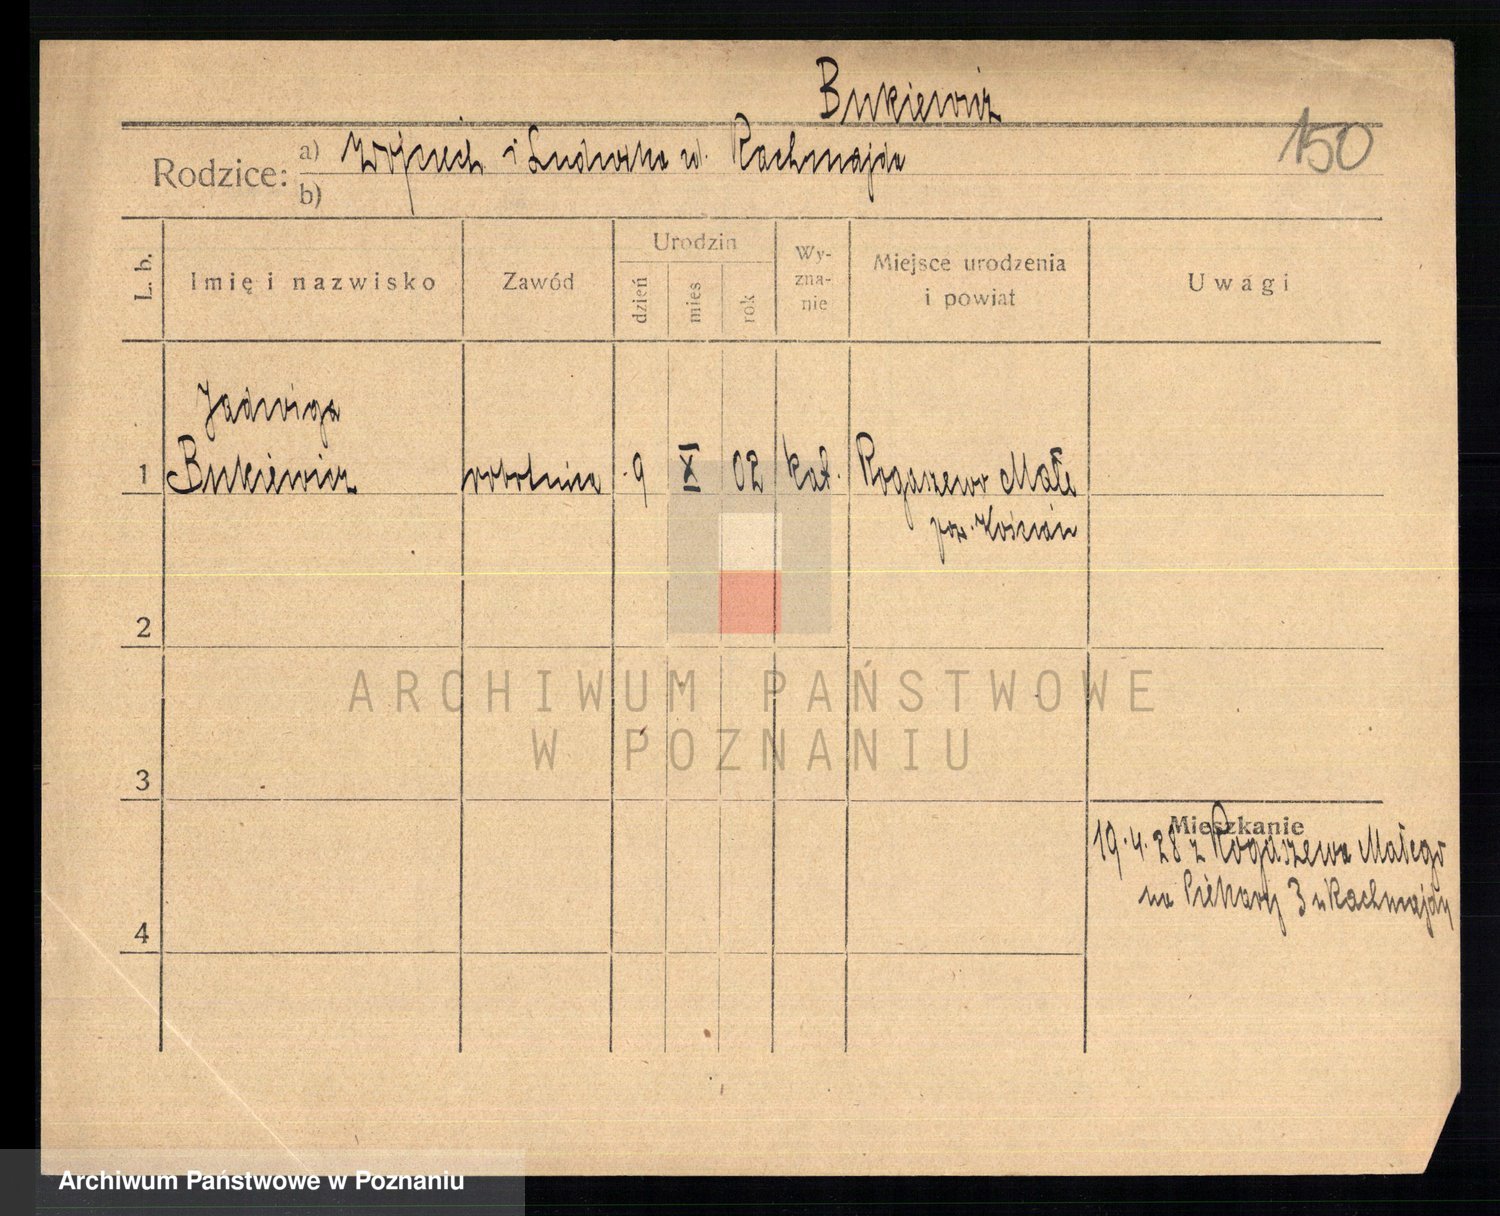 Bukiewicz
150
Rodzice: a) Wojciech i Ludwika ur. Rachmajda
b)
L. b.
Imię i nazwisko
Zawód
Urodzin
dzień
mies
rok
Wy-
zna-
nie
Miejsce urodzenia
i powiat
Uwagi
Jadwiga
1 Bukiewicz robotnica 9 X 02 kat. Rogaszewo Małe
pow. Kościan
2
ARCHIWUM PAŃSTWOWE
W POZNANIU
3
Mieszkanie
19.4.28 z Rogaszewa Małego
na Piekary 3 u Rachmajdy
4
Archiwum Państwowe w Poznaniu